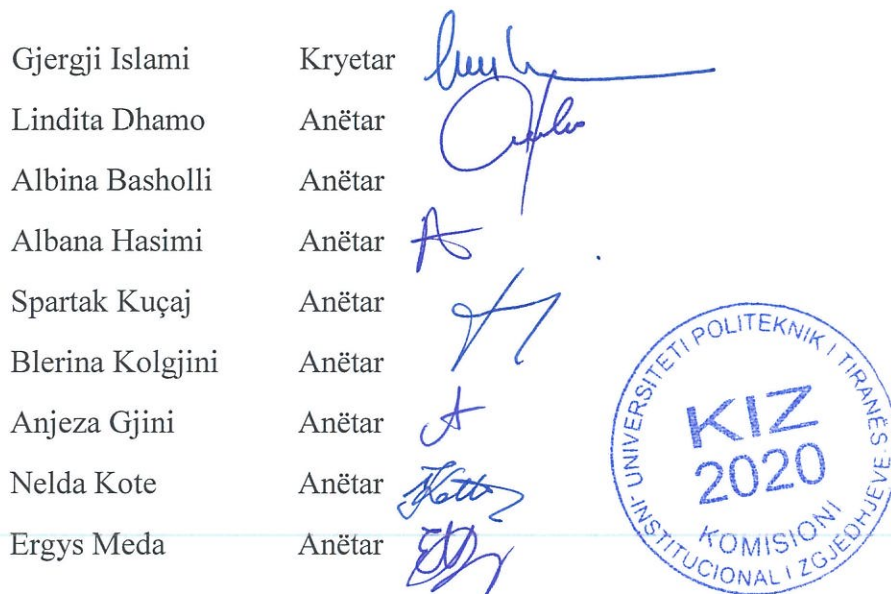 Gjergji Islami Kryetar
Lindita Dhamo Anëtar
Albina Basholli Anëtar
Albana Hasimi Anëtar
Spartak Kuçaj Anëtar
Blerina Kolgjini Anëtar
Anjeza Gjini Anëtar
Nelda Kote Anëtar
Ergys Meda Anëtar
UNIVERSITETI POLITEKNIK I TIRANËS
KIZ
2020
KOMISIONI
INSTITUCIONAL I ZGJEDHJEVE